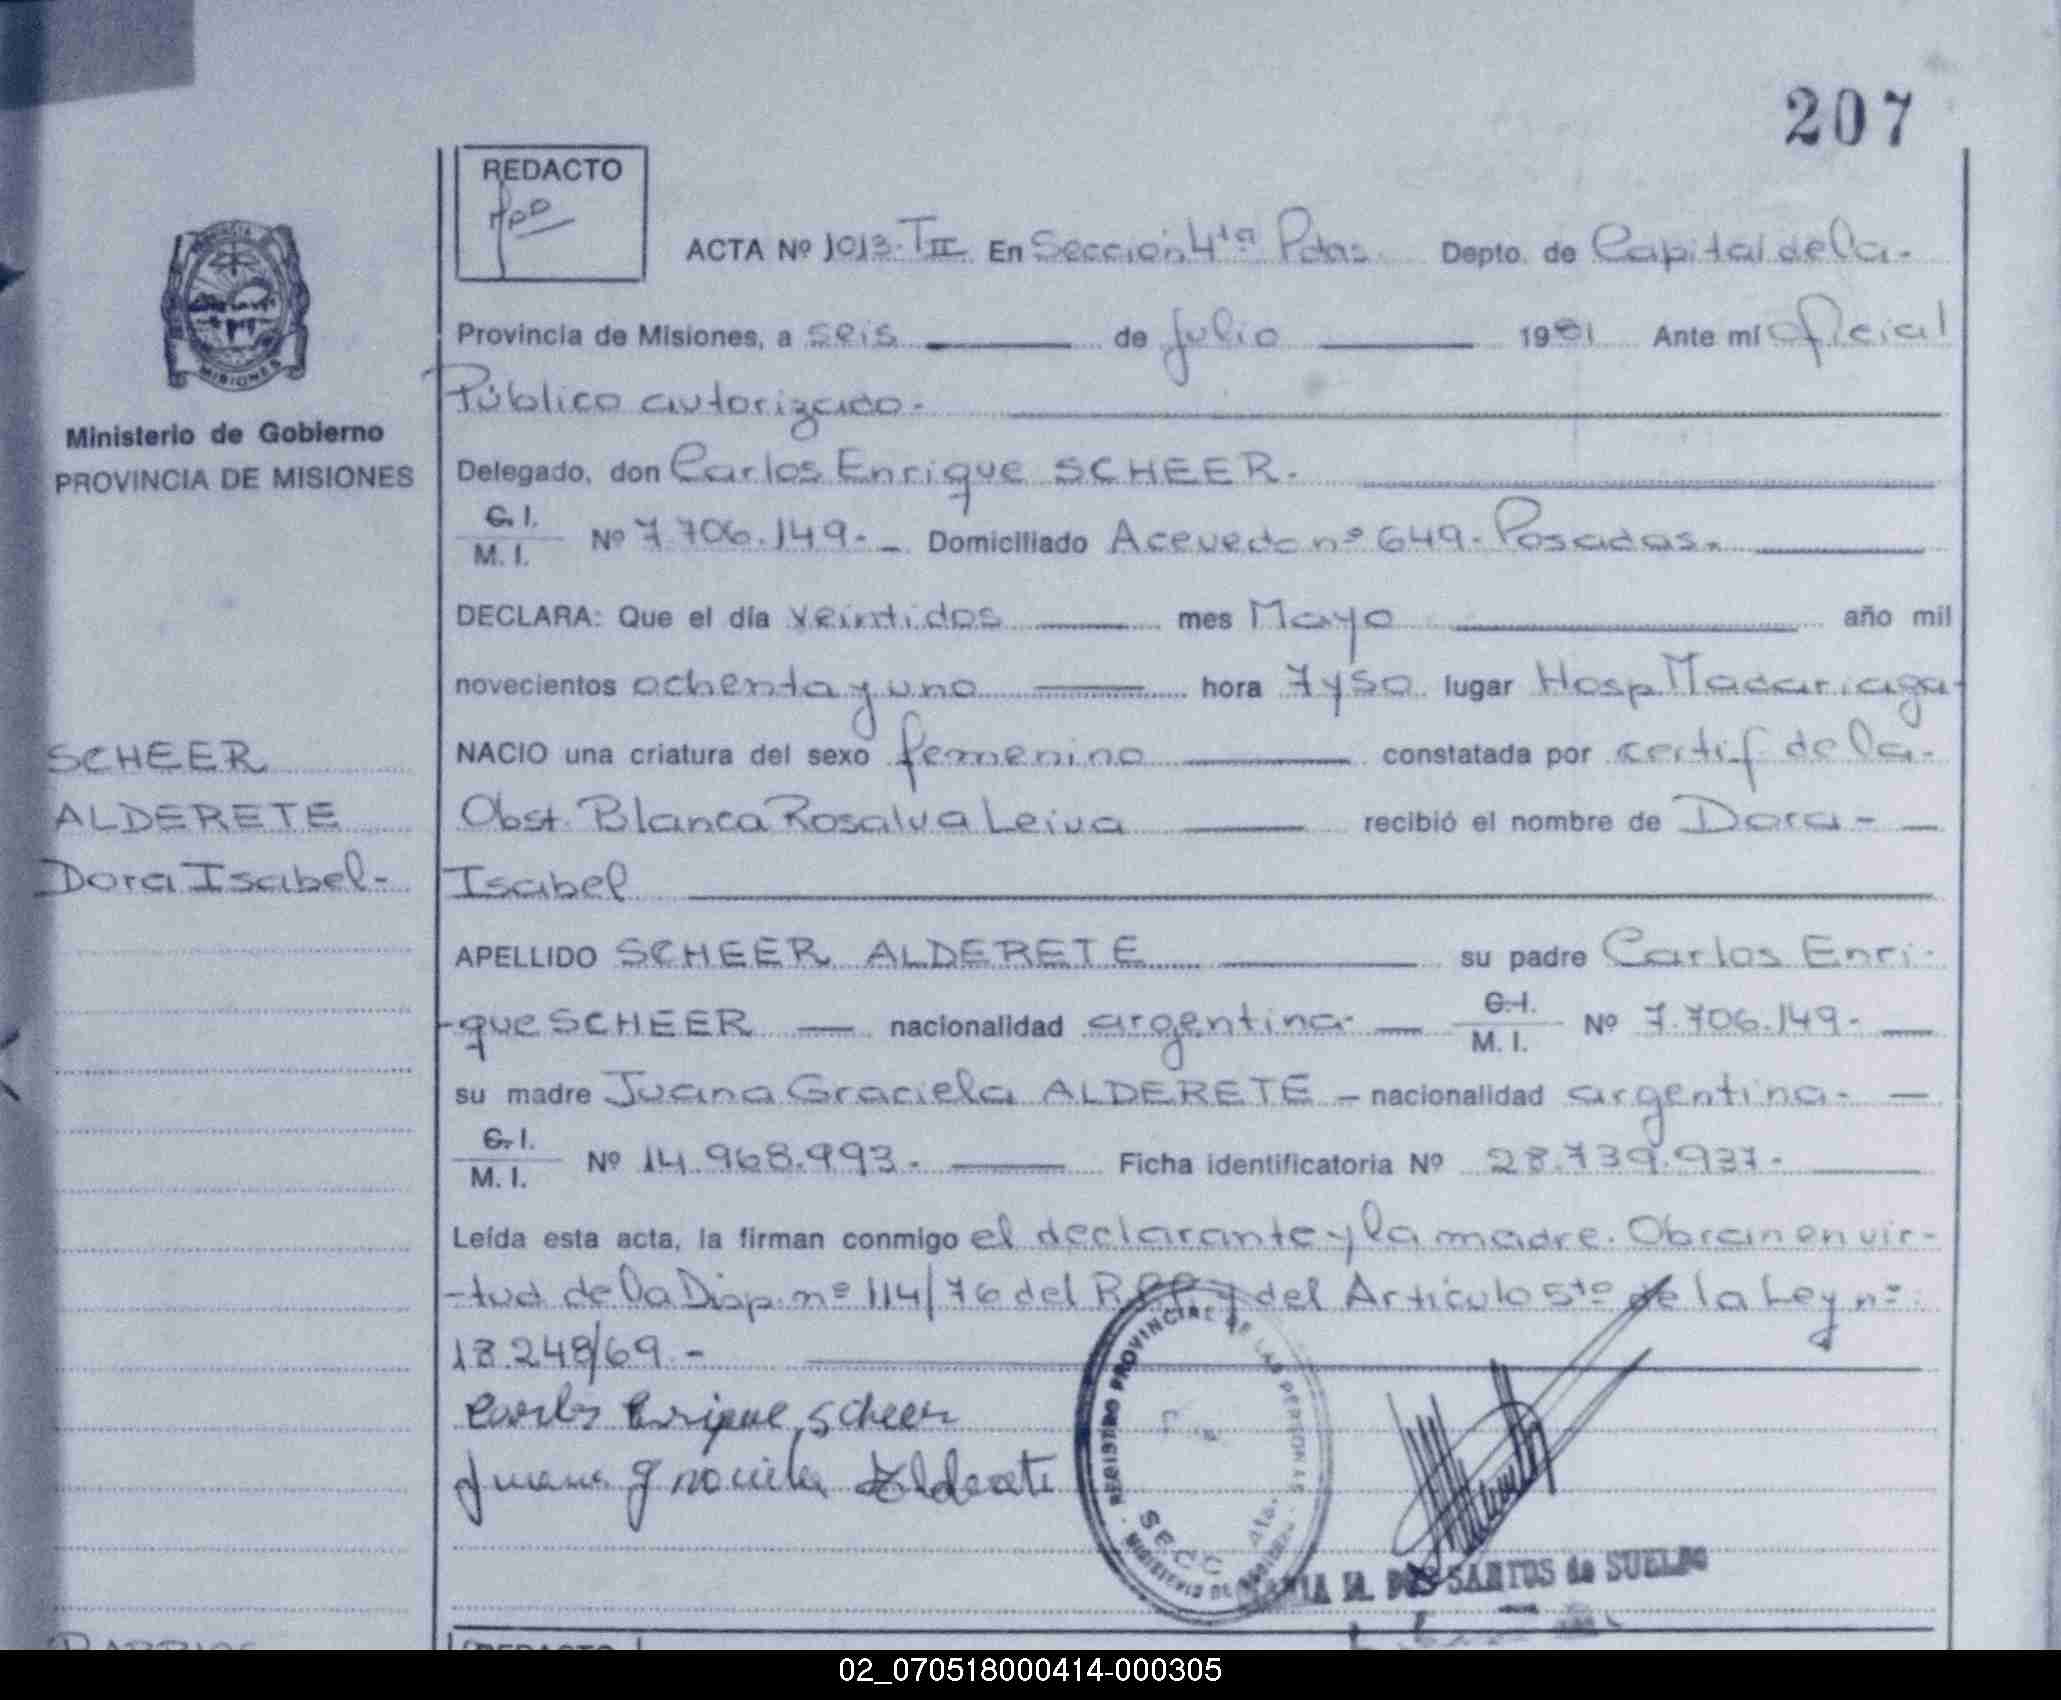 207
REDACTO
ACTA Nº 1013. TII En Sección 4ta Pdas. Depto. de Capital de la-
Provincia de Misiones, a seis de Julio 1981 Ante mí Oficial
Público autorizado.
Ministerio de Gobierno
PROVINCIA DE MISIONES
Delegado, don Carlos Enrique SCHEER.
C. I.
M. I. Nº 7.706.149.- Domiciliado Acevedo nº 649. Posadas.
DECLARA: Que el día veintidos mes Mayo año mil
novecientos ochenta y uno hora 7 y 50 lugar Hosp Madariaga-
NACIO una criatura del sexo femenino constatada por certif de la-
Obst. Blanca Rosalva Leiva recibió el nombre de Dora-
Isabel
SCHEER
ALDERETE
Dora Isabel-
APELLIDO SCHEER ALDERETE su padre Carlos Enri-
-que SCHEER nacionalidad argentina- C. I.
M. I. Nº 7.706.149-
su madre Juana Graciela ALDERETE - nacionalidad argentina-
C. I.
M. I. Nº 14.968.993. Ficha identificatoria Nº 28.739.937-
Leída esta acta, la firman conmigo el declarante y la madre. Obran en vir-
-tud de la Disp. nº 114/76 del R.P.P y del Artículo 5to de la Ley nº
18.248/69.-
Carlos Enrique Scheer
Juana Graciela Alderete
REGISTRO PROVINCIAL DE LAS PERSONAS
SECC. 4ta.
MINISTERIO DE GOBIERNO
MARIA M. DOS SANTOS de SUELDO
BARRIOS
REDACTO
02_070518000414-000305